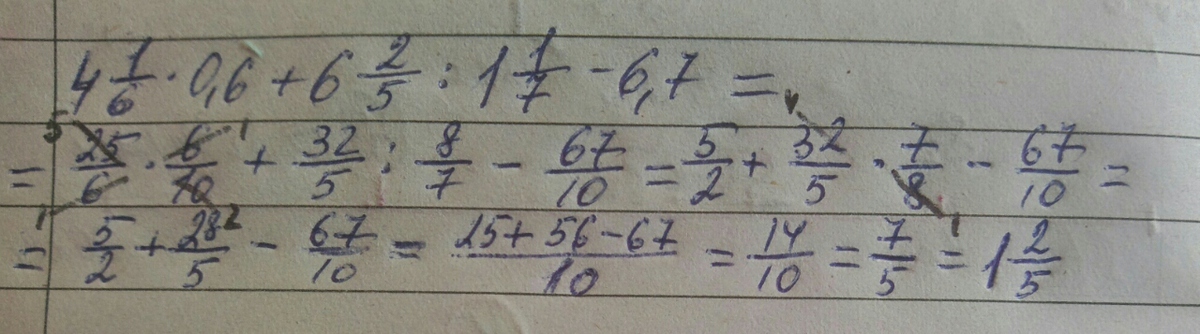 4 1/6 · 0,6 + 6 2/5 : 1 1/7 - 6,7 =
= 25/6 · 6/10 + 32/5 : 8/7 - 67/10 = 5/2 + 32/5 · 7/8 - 67/10 =
= 5/2 + 28/5 - 67/10 = 25+56-67/10 = 14/10 = 7/5 = 1 2/5